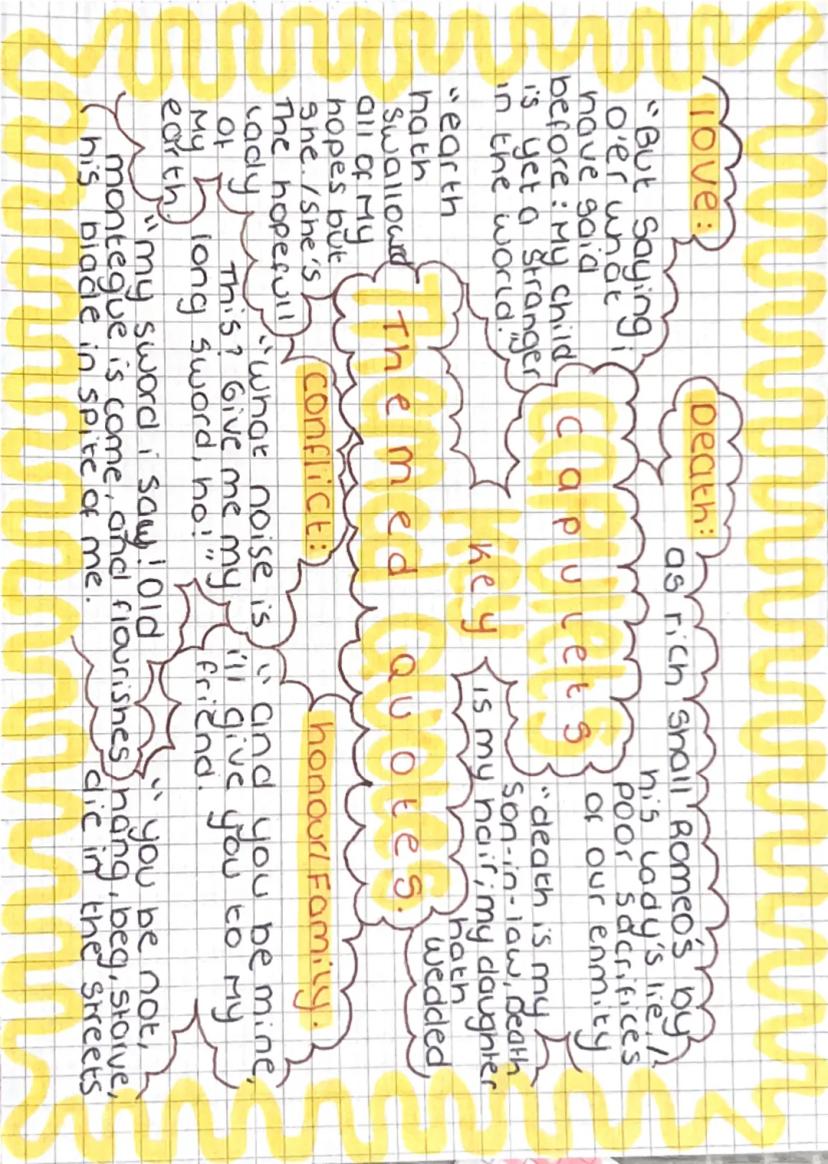 love:
"But saying
o'er what i
have said
before: My child
is yet a stranger
in the world."
"earth
hath
swallowed
all of my
hopes but
she. /she's
The hopefull
lady
of
My
earth.
Death:
as rich shall Romeo's by
his Lady's lie, /
poor sacrifices
of our enmity
"death is my
son-in-law, Death
is my hair; my daughter
hath
wedded
Capulets
key
Themed Quotes.
conflict:
"what noise is
This? Give me my
long sword, ho!"
"my sword i say! Old
montegue is come, and flourishes
his blade in spite of me.
honour/Family.
"and you be mine,
i'll give you to My
friend.
"you be not,
hang, beg, starve,
die in the streets